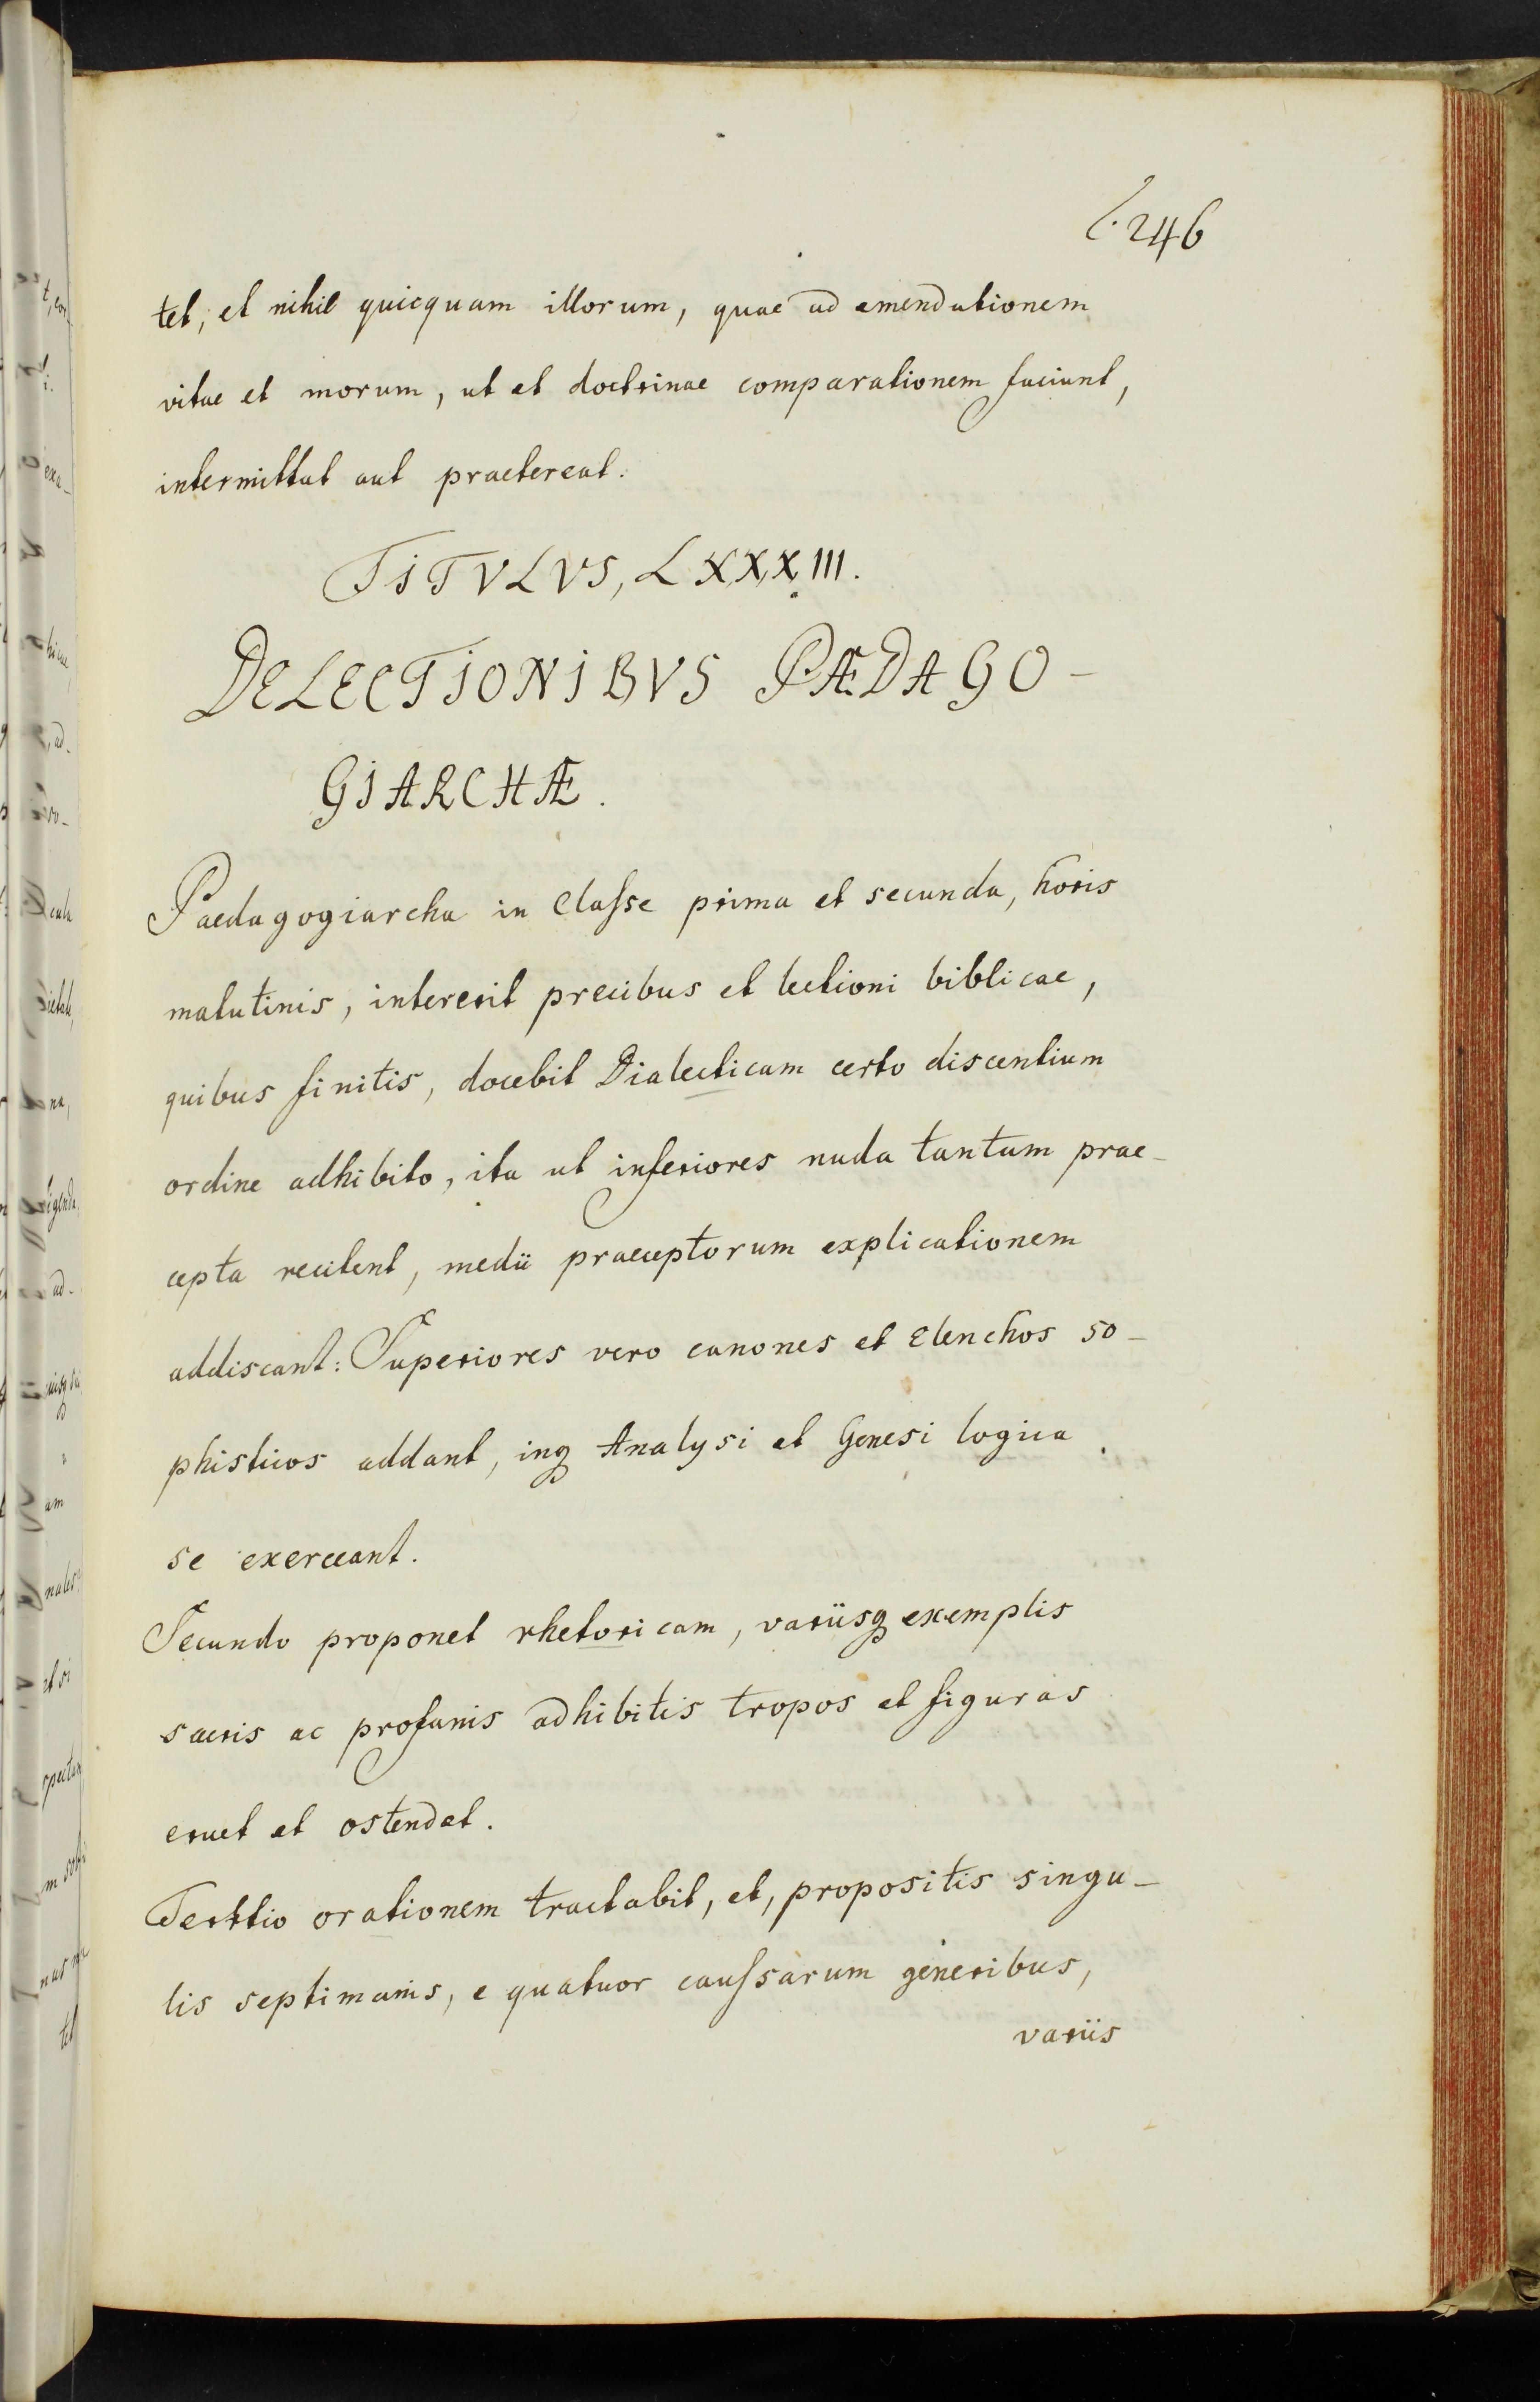 l. 246
tet, et nihil quicquam illorum, quae ad emendationem
vitae et morum, ut et doctrinae comparationem faciunt,
intermittat aut praetereat.
TITVLVS, LXXXIII.
DE LECTIONIBVS PÆDAGO-
GIARCHÆ.
Paedagogiarcha in Classe prima et secunda, horis
matutinis, intererit precibus et lectioni biblicae,
quibus finitis, docebit Dialecticam certo discentium
ordine adhibito, ita ut inferiores nuda tantum prae-
cepta recitent, medii praeceptorum explicationem
addiscant: Superiores vero canones et Elenchos so-
phisticos addant, inq Analysi et Genesi logica
se exerceant.
Secundo proponet rhetoricam, variisq exemplis
sacris ac profanis adhibitis tropos et figuras
eruet et ostendet.
Terttio orationem tractabit, et, propositis singu-
lis septimanis, e quatuor caussarum generibus,
variis